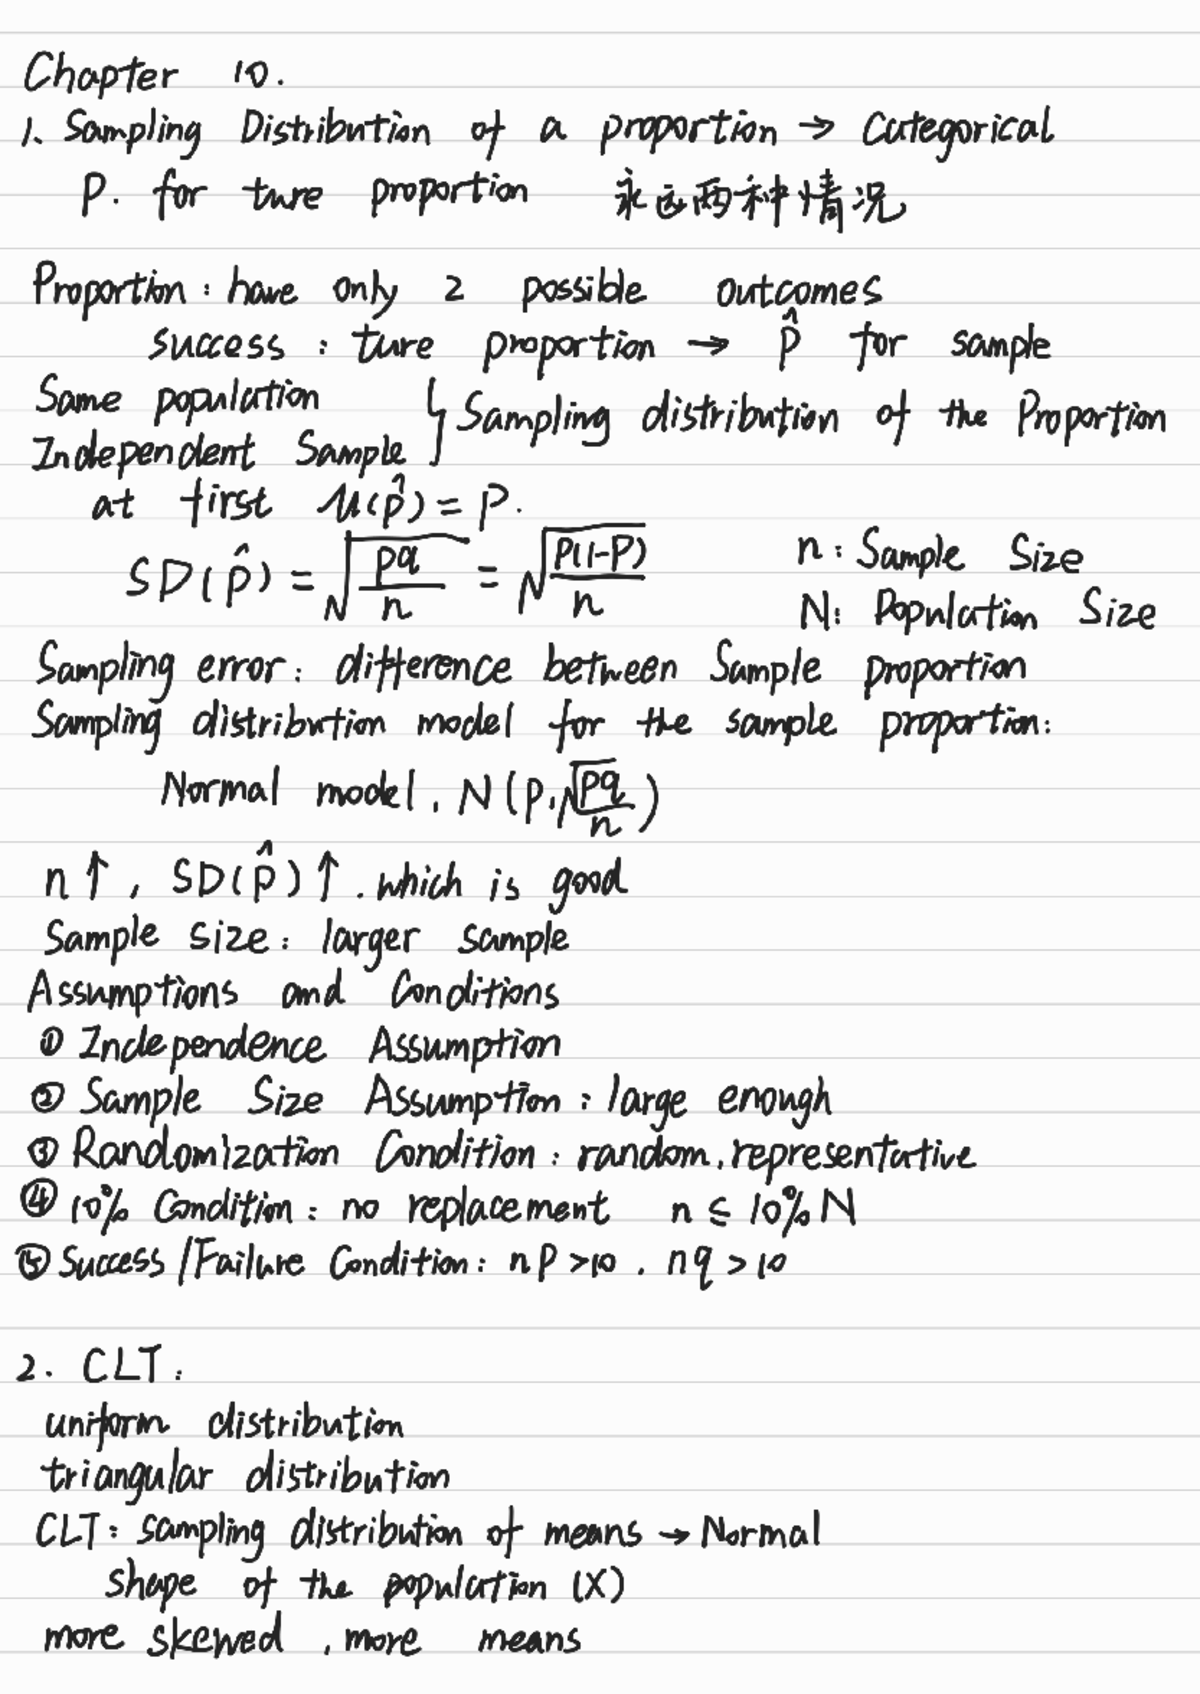 Chapter 10.
1. Sampling Distribution of a proportion → Categorical
P. for ture proportion 永远两种情况
Proportion: have only 2 possible outcomes
success: ture proportion → p̂ for sample
Same population
Independent Sample } Sampling distribution of the Proportion
at first μ(p̂) = P.
SD(p̂) = √(pq/n) = √(P(1-P)/n) n: Sample Size
N: Population Size
Sampling error: difference between Sample proportion
Sampling distribution model for the sample proportion:
Normal model, N(p, √(pq/n))
n↑, SD(p̂)↑. which is good
Sample size: larger sample
Assumptions and Conditions
① Independence Assumption
② Sample Size Assumption: large enough
③ Randomization Condition: random, representative
④ 10% Condition: no replacement n ≤ 10% N
⑤ Success/Failure Condition: np >10. nq >10
2. CLT:
uniform distribution
triangular distribution
CLT: sampling distribution of means → Normal
shape of the population (X)
more skewed, more means